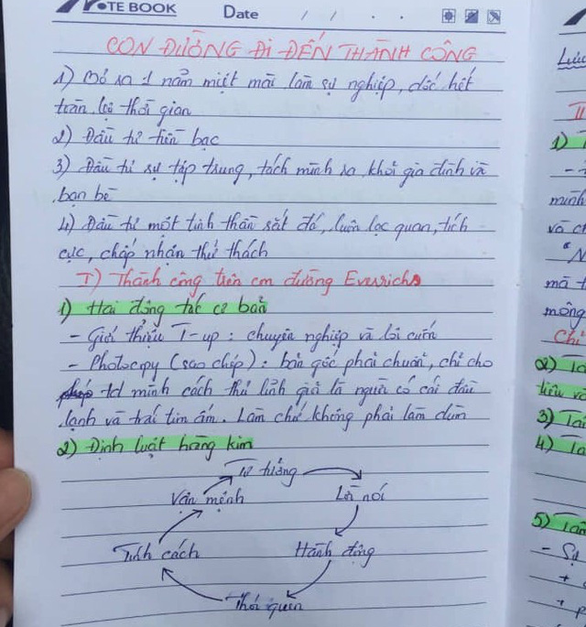 NOTE BOOK
Date / / . .
CON ĐƯỜNG ĐI ĐẾN THÀNH CÔNG
1) Bỏ ra 1 năm miệt mài làm sự nghiệp, dốc hết
toàn bộ thời gian
2) Đầu tư tiền bạc
3) Đầu tư sự tập trung, tách mình ra khỏi gia đình và
bạn bè
4) Đầu tư một tinh thần sắt đá, luôn lạc quan, tích
cực, chấp nhận thử thách
I) Thành công trên con đường Everrichs
1) Hai động tác cơ bản
- Giới thiệu T-up: chuyên nghiệp và lôi cuốn
- Photocopy (sao chép): bản gốc phải chuẩn, chỉ cho
mình cách thủ lĩnh giỏi là người có cái đầu
lạnh và trái tim ấm. Làm chứ không phải làm
2) Định luật hàng kim
Tư tưởng
Vận mệnh
Lời nói
Tính cách
Hành động
Thói quen
Lúc
II
1)
minh
mà t
mông
Chỉ
2)
3) Tai
4)
5)